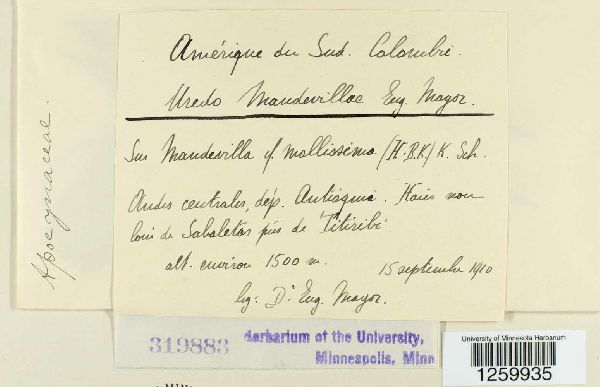 Apocynaceae.
Amérique du Sud. Colombie.
Uredo Mandevillae Eug. Mayor.
Sur Mandevilla cf mollissima (H.B.K) K. Sch.
Andes centrales, dép. Antioquia. Haies non
loin de Sabaletas près de Titiribi
alt. environ 1500 m. 15 septembre 1910
leg: Dr Eug. Mayor.
319883
Herbarium of the University,
Minneapolis, Minn
University of Minnesota Herbarium
1259935